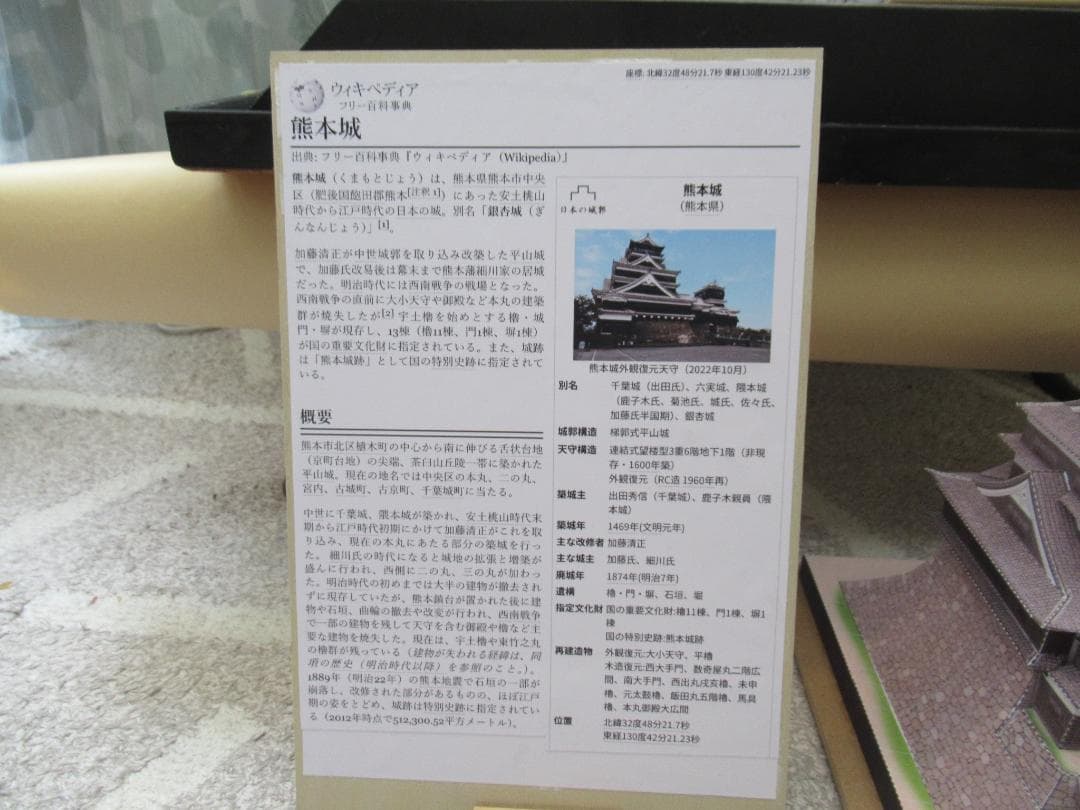 座標: 北緯32度48分21.7秒 東経130度42分21.23秒
ウィキペディア
フリー百科事典
熊本城
出典: フリー百科事典『ウィキペディア（Wikipedia）』
熊本城（くまもとじょう）は、熊本県熊本市中央
区（肥後国飽田郡熊本[注釈 1]）にあった安土桃山
時代から江戸時代の日本の城。別名「銀杏城（ぎ
んなんじょう）」[1]。
加藤清正が中世城郭を取り込み改築した平山城
で、加藤氏改易後は幕末まで熊本藩細川家の居城
だった。明治時代には西南戦争の戦場となった。
西南戦争の直前に大小天守や御殿など本丸の建築
群が焼失したが[2] 宇土櫓を始めとする櫓・城
門・塀が現存し、13棟（櫓11棟、門1棟、塀1棟）
が国の重要文化財に指定されている。また、城跡
は「熊本城跡」として国の特別史跡に指定されて
いる。
概要
熊本市北区植木町の中心から南に伸びる舌状台地
（京町台地）の尖端、茶臼山丘陵一帯に築かれた
平山城。現在の地名では中央区の本丸、二の丸、
宮内、古城町、古京町、千葉城町に当たる。
中世に千葉城、隈本城が築かれ、安土桃山時代末
期から江戸時代初期にかけて加藤清正がこれを取
り込み、現在の本丸にあたる部分の築城を行っ
た。 細川氏の時代になると城地の拡張と増築が
盛んに行われ、西側に二の丸、三の丸が加わっ
た。明治時代の初めまでは大半の建物が撤去され
ずに現存していたが、熊本鎮台が置かれた後に建
物や石垣、曲輪の撤去や改変が行われ、西南戦争
で一部の建物を残して天守を含む御殿や櫓など主
要な建物を焼失した。現在は、宇土櫓や東竹之丸
の櫓群が残っている（建物が失われる経緯は、同
項の歴史（明治時代以降）を参照のこと。）。
1889年（明治22年）の熊本地震で石垣の一部が
崩落し、改修された部分があるものの、ほぼ江戸
期の姿をとどめ、城跡は特別史跡に指定されてい
る（2012年時点で512,300.52平方メートル）。
日本の城郭
熊本城
（熊本県）
熊本城外観復元天守（2022年10月）
別名 千葉城（出田氏）、六実城、隈本城
（鹿子木氏、菊池氏、城氏、佐々氏、
加藤氏半国期）、銀杏城
城郭構造 梯郭式平山城
天守構造 連結式望楼型3重6階地下1階（非現
存・1600年築）
外観復元（RC造 1960年再）
築城主 出田秀信（千葉城）、鹿子木親員（隈
本城）
築城年 1469年(文明元年)
主な改修者 加藤清正
主な城主 加藤氏、細川氏
廃城年 1874年(明治7年)
遺構 櫓・門・塀、石垣、堀
指定文化財 国の重要文化財:櫓11棟、門1棟、塀1
棟
国の特別史跡:熊本城跡
再建造物 外観復元:大小天守、平櫓
木造復元:西大手門、数寄屋丸二階広
間、南大手門、西出丸戌亥櫓、未申
櫓、元太鼓櫓、飯田丸五階櫓、馬具
櫓、本丸御殿大広間
位置 北緯32度48分21.7秒
東経130度42分21.23秒